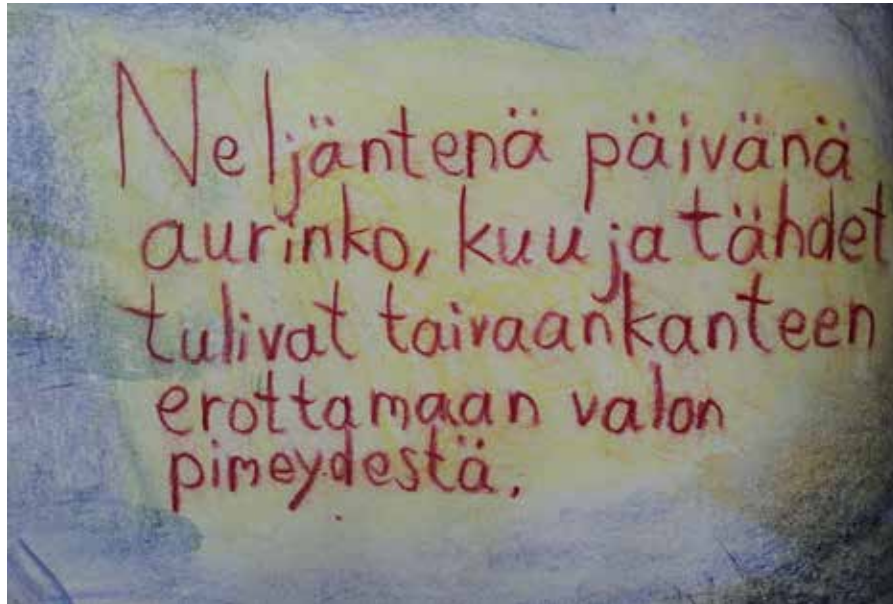 Neljäntenä päivänä
aurinko, kuu ja tähdet
tulivat taivaankanteen
erottamaan valon
pimeydestä.